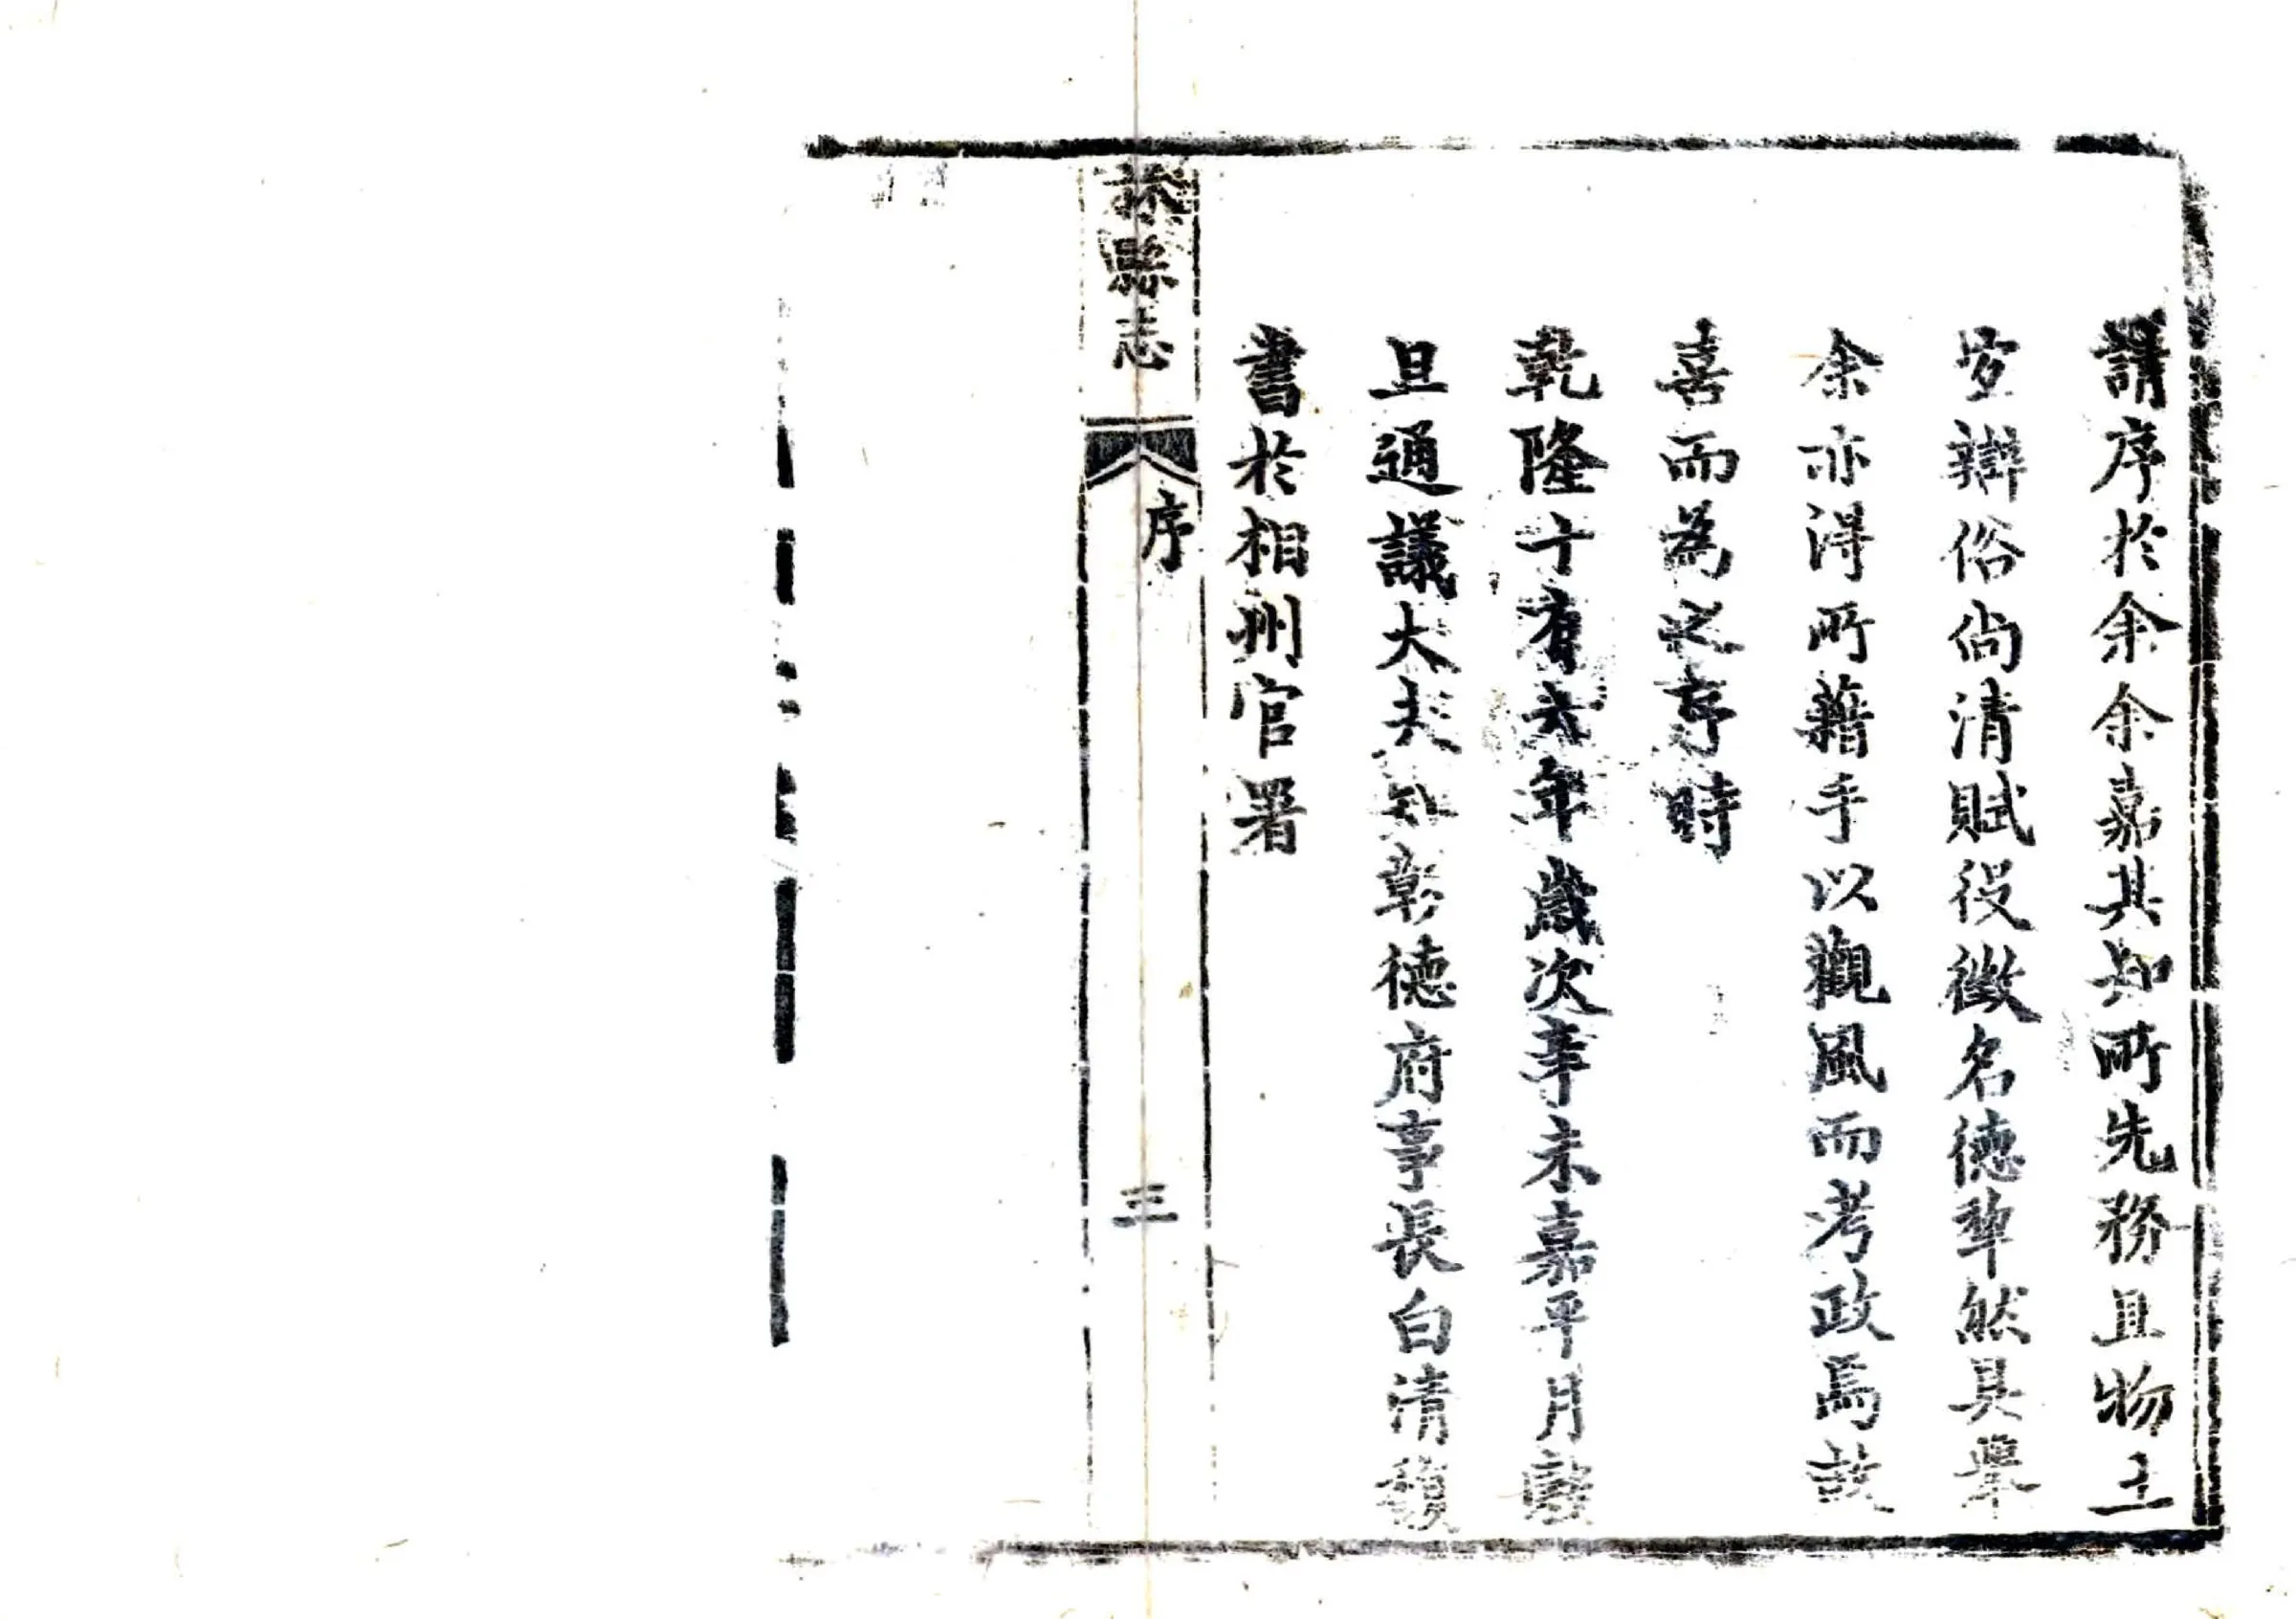 請序於余余嘉其知所先務且物土
宜辯俗尚清賦役徵名德犂然具舉
余亦得所藉手以觀風而考政焉故
喜而為之序時
乾隆十有六年歲次辛未嘉平月
旦通議大夫知彰德府事長白清馥
書於相州官署
林縣志
序
三